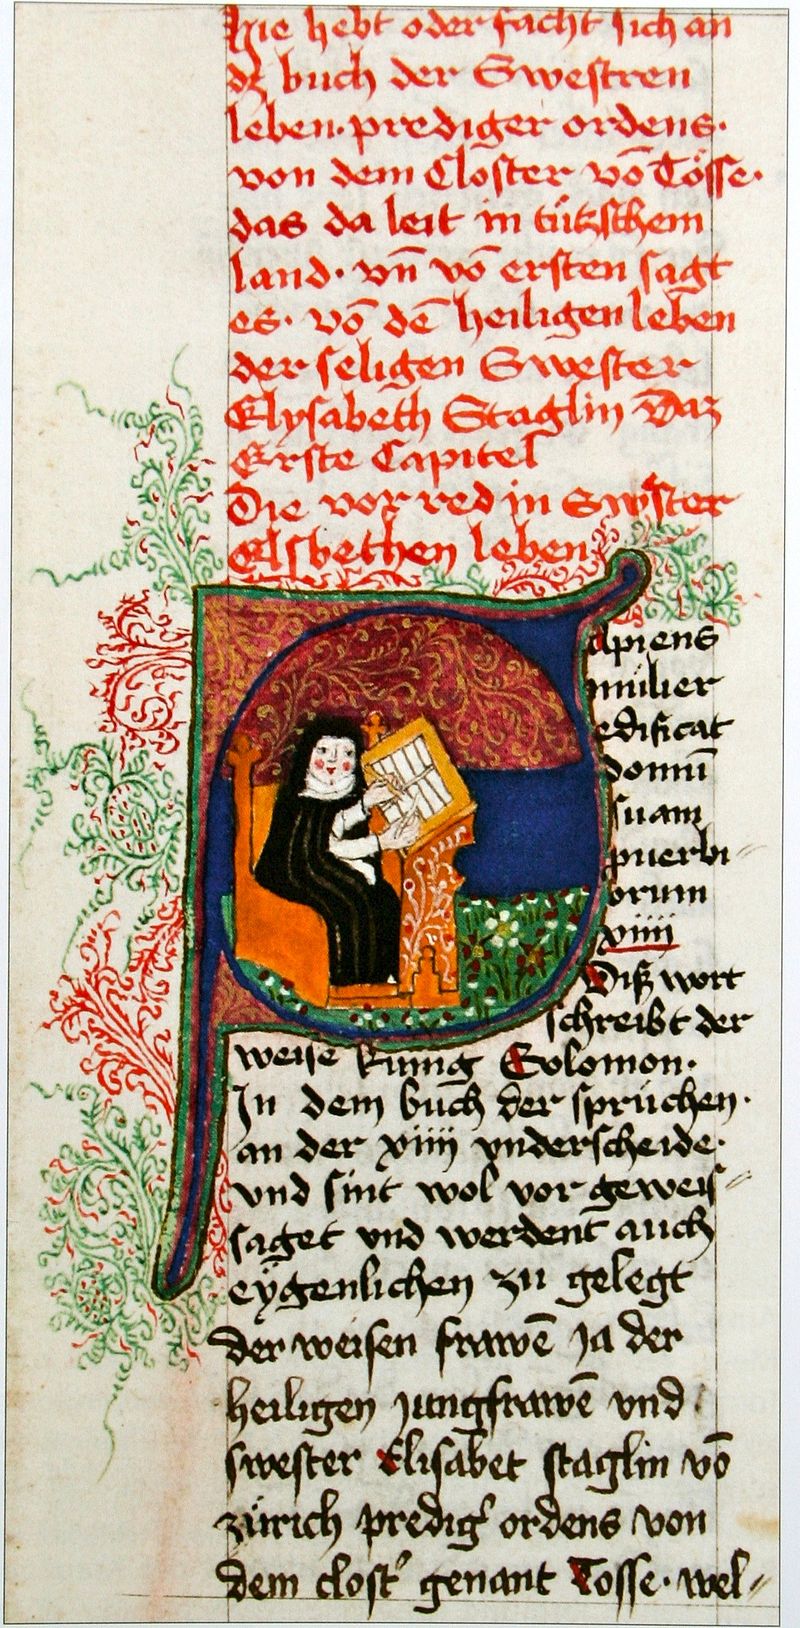 Hie hebt oder facht sich an
dz buch der Swestren
leben · prediger ordens ·
von dem Closter vō Tösse ·
das da leit in tützschem
land · vn̄ vō ersten sagt
es · vō dē heiligen leben
der seligen Swester
Elysabeth Staglin Daz
Erste Capitel
Die vor red in Swster
Elsbethen leben
Sapiens
mulier
edificat
domū
suam
puerbi
orum
xiiii
Diß wort
schreibt der
weise kunig Solomon ·
In dem buch der sprüchen ·
an der xiiii vnderscheide ·
vnd sint wol vor geweis
saget vnd werdent auch
eÿgenlichen zu gelegt
der weisen frawē Ja der
heiligen Jungfrawē vnd
swester Elisabet staglin vō
zürich predig' ordens von
dem clost' genant Tosse · wel